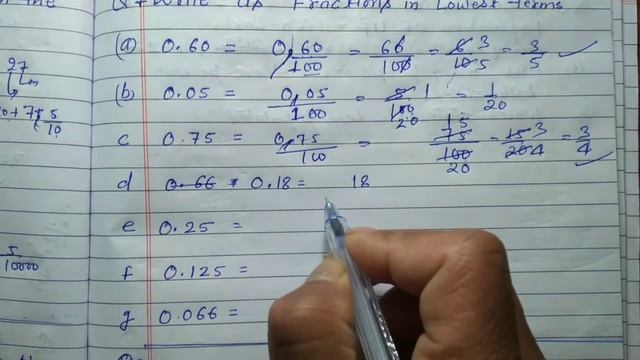 Q7 Write as Fractions in Lowest terms
(a) 0.60 = 0,60/100 = 60/100 = 6/10 3/5 = 3/5
(b) 0.05 = 0,05/100 = 5/100 1/20 = 1/20
c 0.75 = 0,75/100 = 75/100 15/20 = 15/20 3/4 = 3/4
d 0.66 = 0.18 = 18
e 0.25 =
f 0.125 =
g 0.066 =
27
5/10
10000